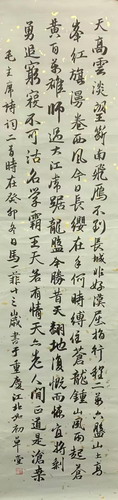 天高雲淡望斷南飛雁不到長城非好漢屈指行程二萬六盤山上高
峯紅旗漫卷西風今日長纓在手何時縛住蒼龍鍾山風雨起蒼
黄百萬雄師過大江虎踞龍盤今勝昔天翻地復慨而慷宜將剩
勇追窮寇不可沽名學霸王天若有情天亦老人間正道是滄桑
毛主席詩詞二首時在癸卯冬日馬菲十三歲書于重慶江北如初草堂